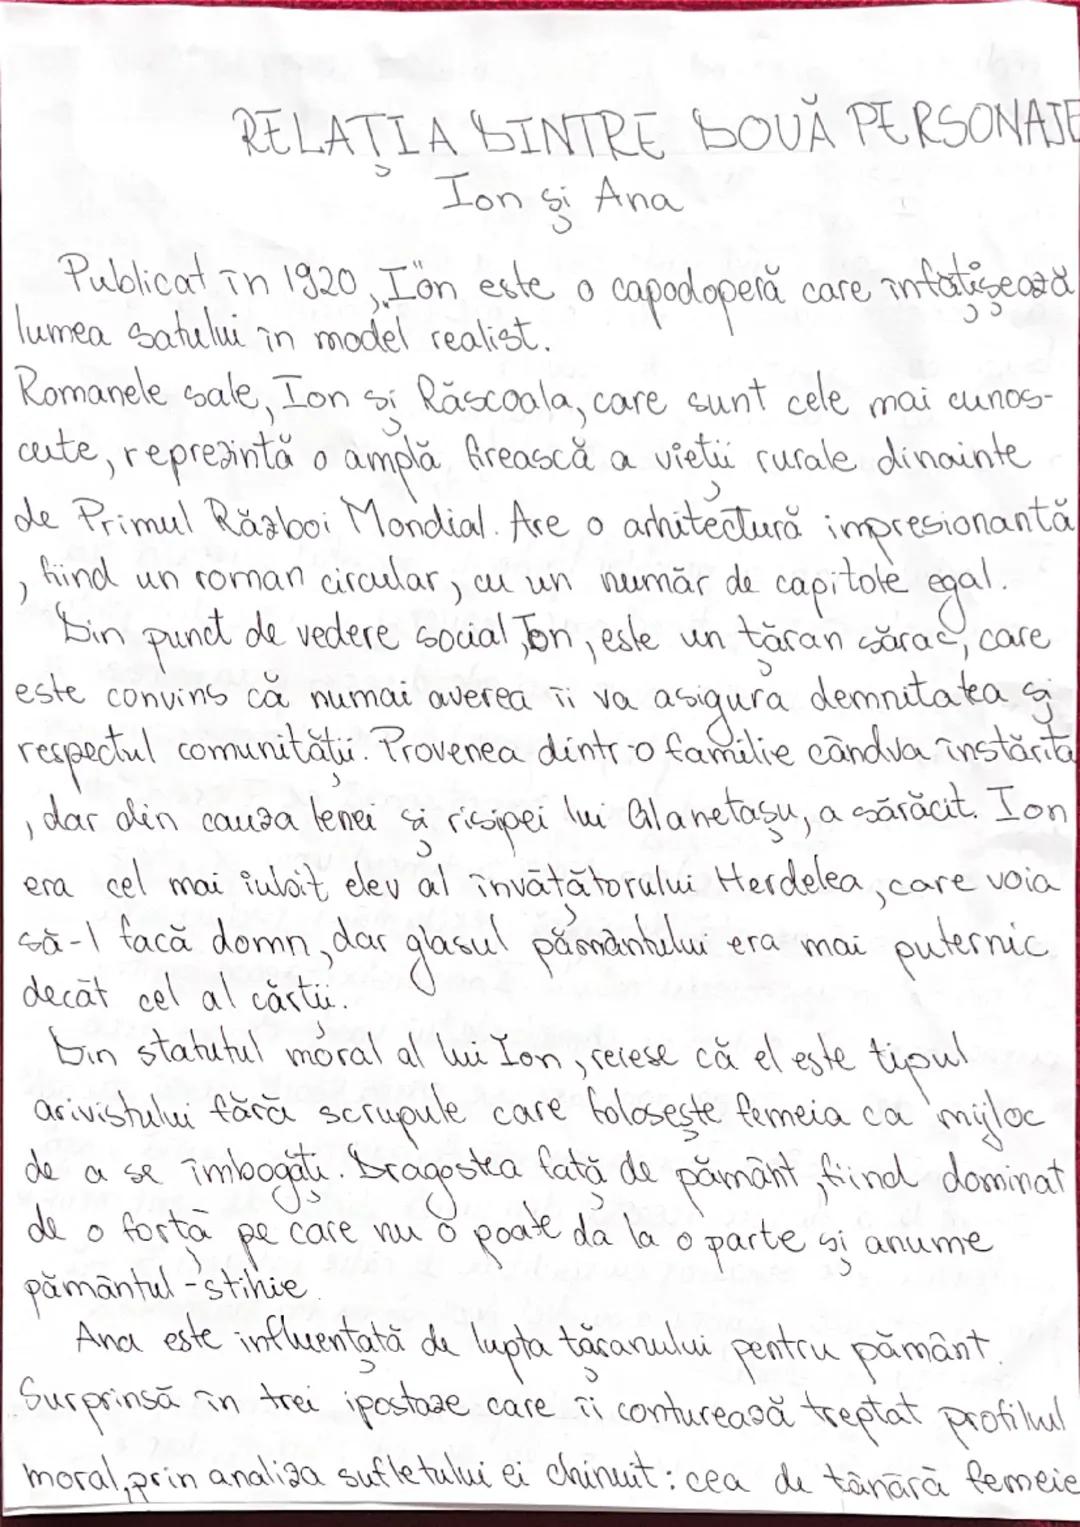 RELAȚIA DINTRE DOUĂ PERSONAJE
Ion și Ana
Publicat în 1920, „Ion" este o capodoperă care înfățișează
lumea satului în model realist.
Romanele sale, Ion și Răscoala, care sunt cele mai cunos-
cute, reprezintă o amplă firească a vieții rurale dinainte
de Primul Război Mondial. Are o arhitectură impresionantă
, fiind un roman circular, cu un număr de capitole egal.
Din punct de vedere social, Ion, este un țăran sărac, care
este convins că numai averea îi va asigura demnitatea și
respectul comunității. Provenea dintr-o familie cândva înstărită
, dar din cauza lenei și risipei lui Glanetașu, a sărăcit. Ion
era cel mai iubit elev al învățătorului Herdelea, care voia
să-l facă domn, dar glasul pământului era mai puternic
decât cel al cărții.
Din statutul moral al lui Ion, reiese că el este tipul
arivistului fără scrupule care folosește femeia ca mijloc
de a se îmbogăți. Dragostea față de pământ, fiind dominat
de o forță pe care nu o poate da la o parte și anume
pământul-stihie.
Ana este influențată de lupta țăranului pentru pământ.
Surprinsă în trei ipostaze care îi conturează treptat profilul
moral, prin analiza sufletului ei chinuit: cea de tânără femeie